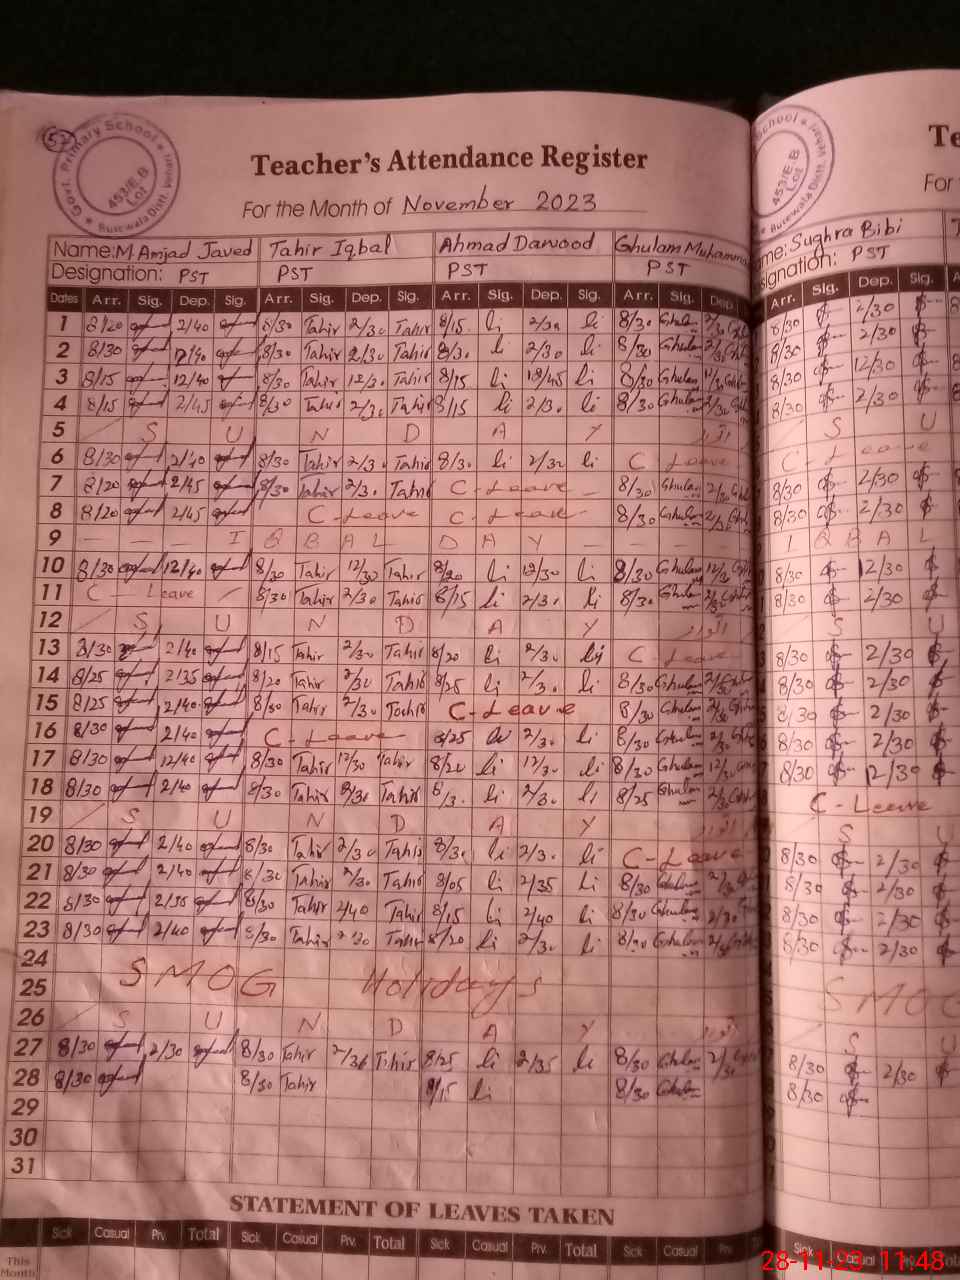 57
Govt. Primary School
453/E.B
Lot
Burewala Distt. Vehari
Teacher's Attendance Register
For the Month of November 2023
Name: M. Amjad Javed Tahir Iqbal Ahmad Dawood Ghulam Muhamma
Designation: PST PST PST PST
Dates Arr. Sig. Dep. Sig. Arr. Sig. Dep. Sig. Arr. Sig. Dep. Sig. Arr. Sig. Dep
1 8/20 2/40 8/30 Tahir 2/30 Tahir 8/15 li 2/30 li 8/30 Ghulam 2/30
2 8/30 8/30 Tahir 2/30 Tahir 8/30 li 2/30 li 8/30 Ghulam 2/30
3 8/15 12/40 8/30 Tahir 12/30 Tahir 8/15 li li 8/30 Ghulam
4 8/15 2/45 8/30 Tahir 2/30 Tahir 8/15 li 2/30 li 8/30 Ghulam 2/30
5 S U N D A Y اتوار
6 8/30 2/40 8/30 Tahir 2/30 Tahir 8/30 li 2/30 li C Leave
7 8/20 2/45 8/30 Tahir 2/30 Tahir C-Leave 8/30 Ghulam 2/30
8 8/20 2/45 C-Leave C-Leave 8/30 Ghulam 2/30
9 I Q B A L D A Y
10 8/30 12/40 8/30 Tahir 12/30 Tahir 8/20 li 12/30 li 8/30 Ghulam 12/30
11 C - Leave 8/30 Tahir 2/30 Tahir 8/15 li 2/30 li 8/30 Ghulam 2/30
12 S U N D A Y اتوار
13 8/30 2/40 8/15 Tahir 2/30 Tahir 8/20 li 2/30 li C-Leave
14 8/25 2/35 8/20 Tahir 2/30 Tahir 8/25 li 2/30 li 8/30 Ghulam 2/30
15 8/25 2/40 8/30 Tahir 2/30 Tahir C-Leave 8/30 Ghulam 2/30
16 8/30 2/40 C-Leave 8/25 2/30 li 8/30 Ghulam 2/30
17 8/30 12/40 8/30 Tahir 12/30 Tahir 8/20 li 12/30 li 8/30 Ghulam 12/30
18 8/30 2/40 8/30 Tahir 2/30 Tahir 8/30 li 2/30 li 8/25 Ghulam 2/30
19 S U N D A Y اتوار
20 8/30 2/40 8/30 Tahir 2/30 Tahir 8/30 li 2/30 li C-Leave
21 8/30 2/40 8/30 Tahir 2/30 Tahir 8/05 li 2/35 li 8/30 Ghulam 2/30
22 8/30 8/30 Tahir 2/40 Tahir 8/15 li 2/40 li 8/30 Ghulam 2/30
23 8/30 2/40 8/30 Tahir 2/30 Tahir 8/20 li 2/30 li Ghulam
24
25 SMOG Holidays
26 S U N D A Y اتوار
27 8/30 2/30 8/30 Tahir Tahir 8/25 li 2/35 li 8/30 Ghulam 2/30
28 8/30 8/30 Tahir 8/15 li 8/30 Ghulam
29
30
31
STATEMENT OF LEAVES TAKEN
Sick Casual Prv. Total Sick Casual Prv. Total Sick Casual Prv. Total Sick Casual Prv.
This Month
School
453/E.B
Lot
Burewala Distt. Vehari
Te
For
me: Sughra Bibi
signation: PST
Arr. Sig. Dep. Sig.
8/30 2/30
8/30 2/30
8/30 12/30
8/30 2/30
S U
C - Leave
8/30 2/30
8/30 2/30
I Q B A L
8/30 12/30
8/30 2/30
S U
8/30 2/30
8/30 2/30
8/30 2/30
8/30 2/30
8/30 12/30
C - Leave
S U
8/30 2/30
8/30 2/30
8/30 2/30
8/30 2/30
SMOG
S U
8/30 2/30
8/30
Sick Casual Prv.
28-11-23 11:48